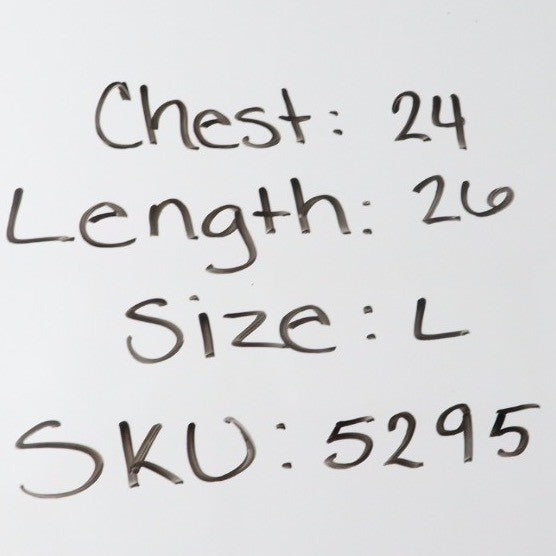 Chest: 24
Length: 26
Size: L
SKU: 5295